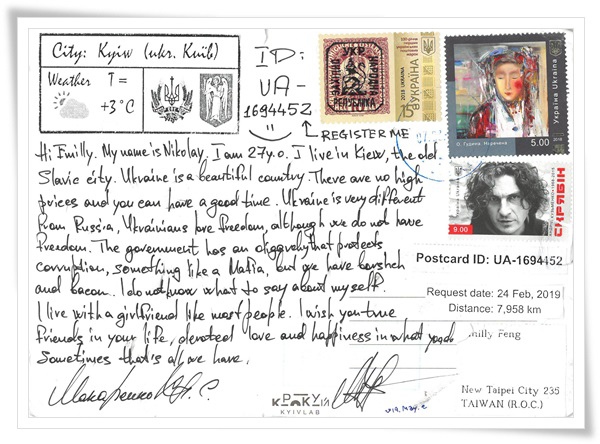 City: Kyiv (ukr. Київ)
Weather T =
+3°C
ID:
UA-
1694452
REGISTER ME
Hi Emilly. My name is Nikolay. I am 27 y.o. I live in Kiew, the old
Slavic city. Ukraine is a beautiful country. There are no high
prices and you can have a good time. Ukraine is very different
from Russia, Ukrainians love freedom, although we do not have
freedom. The government has an oligarchy that protects
corruption, something like a Mafia, but we have borshch
and bacon. I do not know what to say about myself.
I live with a girlfriend like most people. I wish you true
friends in your life, devoted love and happiness in what you do
Sometimes that's all we have.
УКР
НАРОДНЯ
РЕПУБЛІКА
2018 UKRAINA
УКРАЇНА
Україна Ukraina
5.00
2018
СКРЯБІН
9.00
Postcard ID: UA-1694452
Request date: 24 Feb, 2019
Distance: 7,958 km
milly Feng
New Taipei City 235
TAIWAN (R.O.C.)
КРОКУЙ
KYIVLAB
via May.e